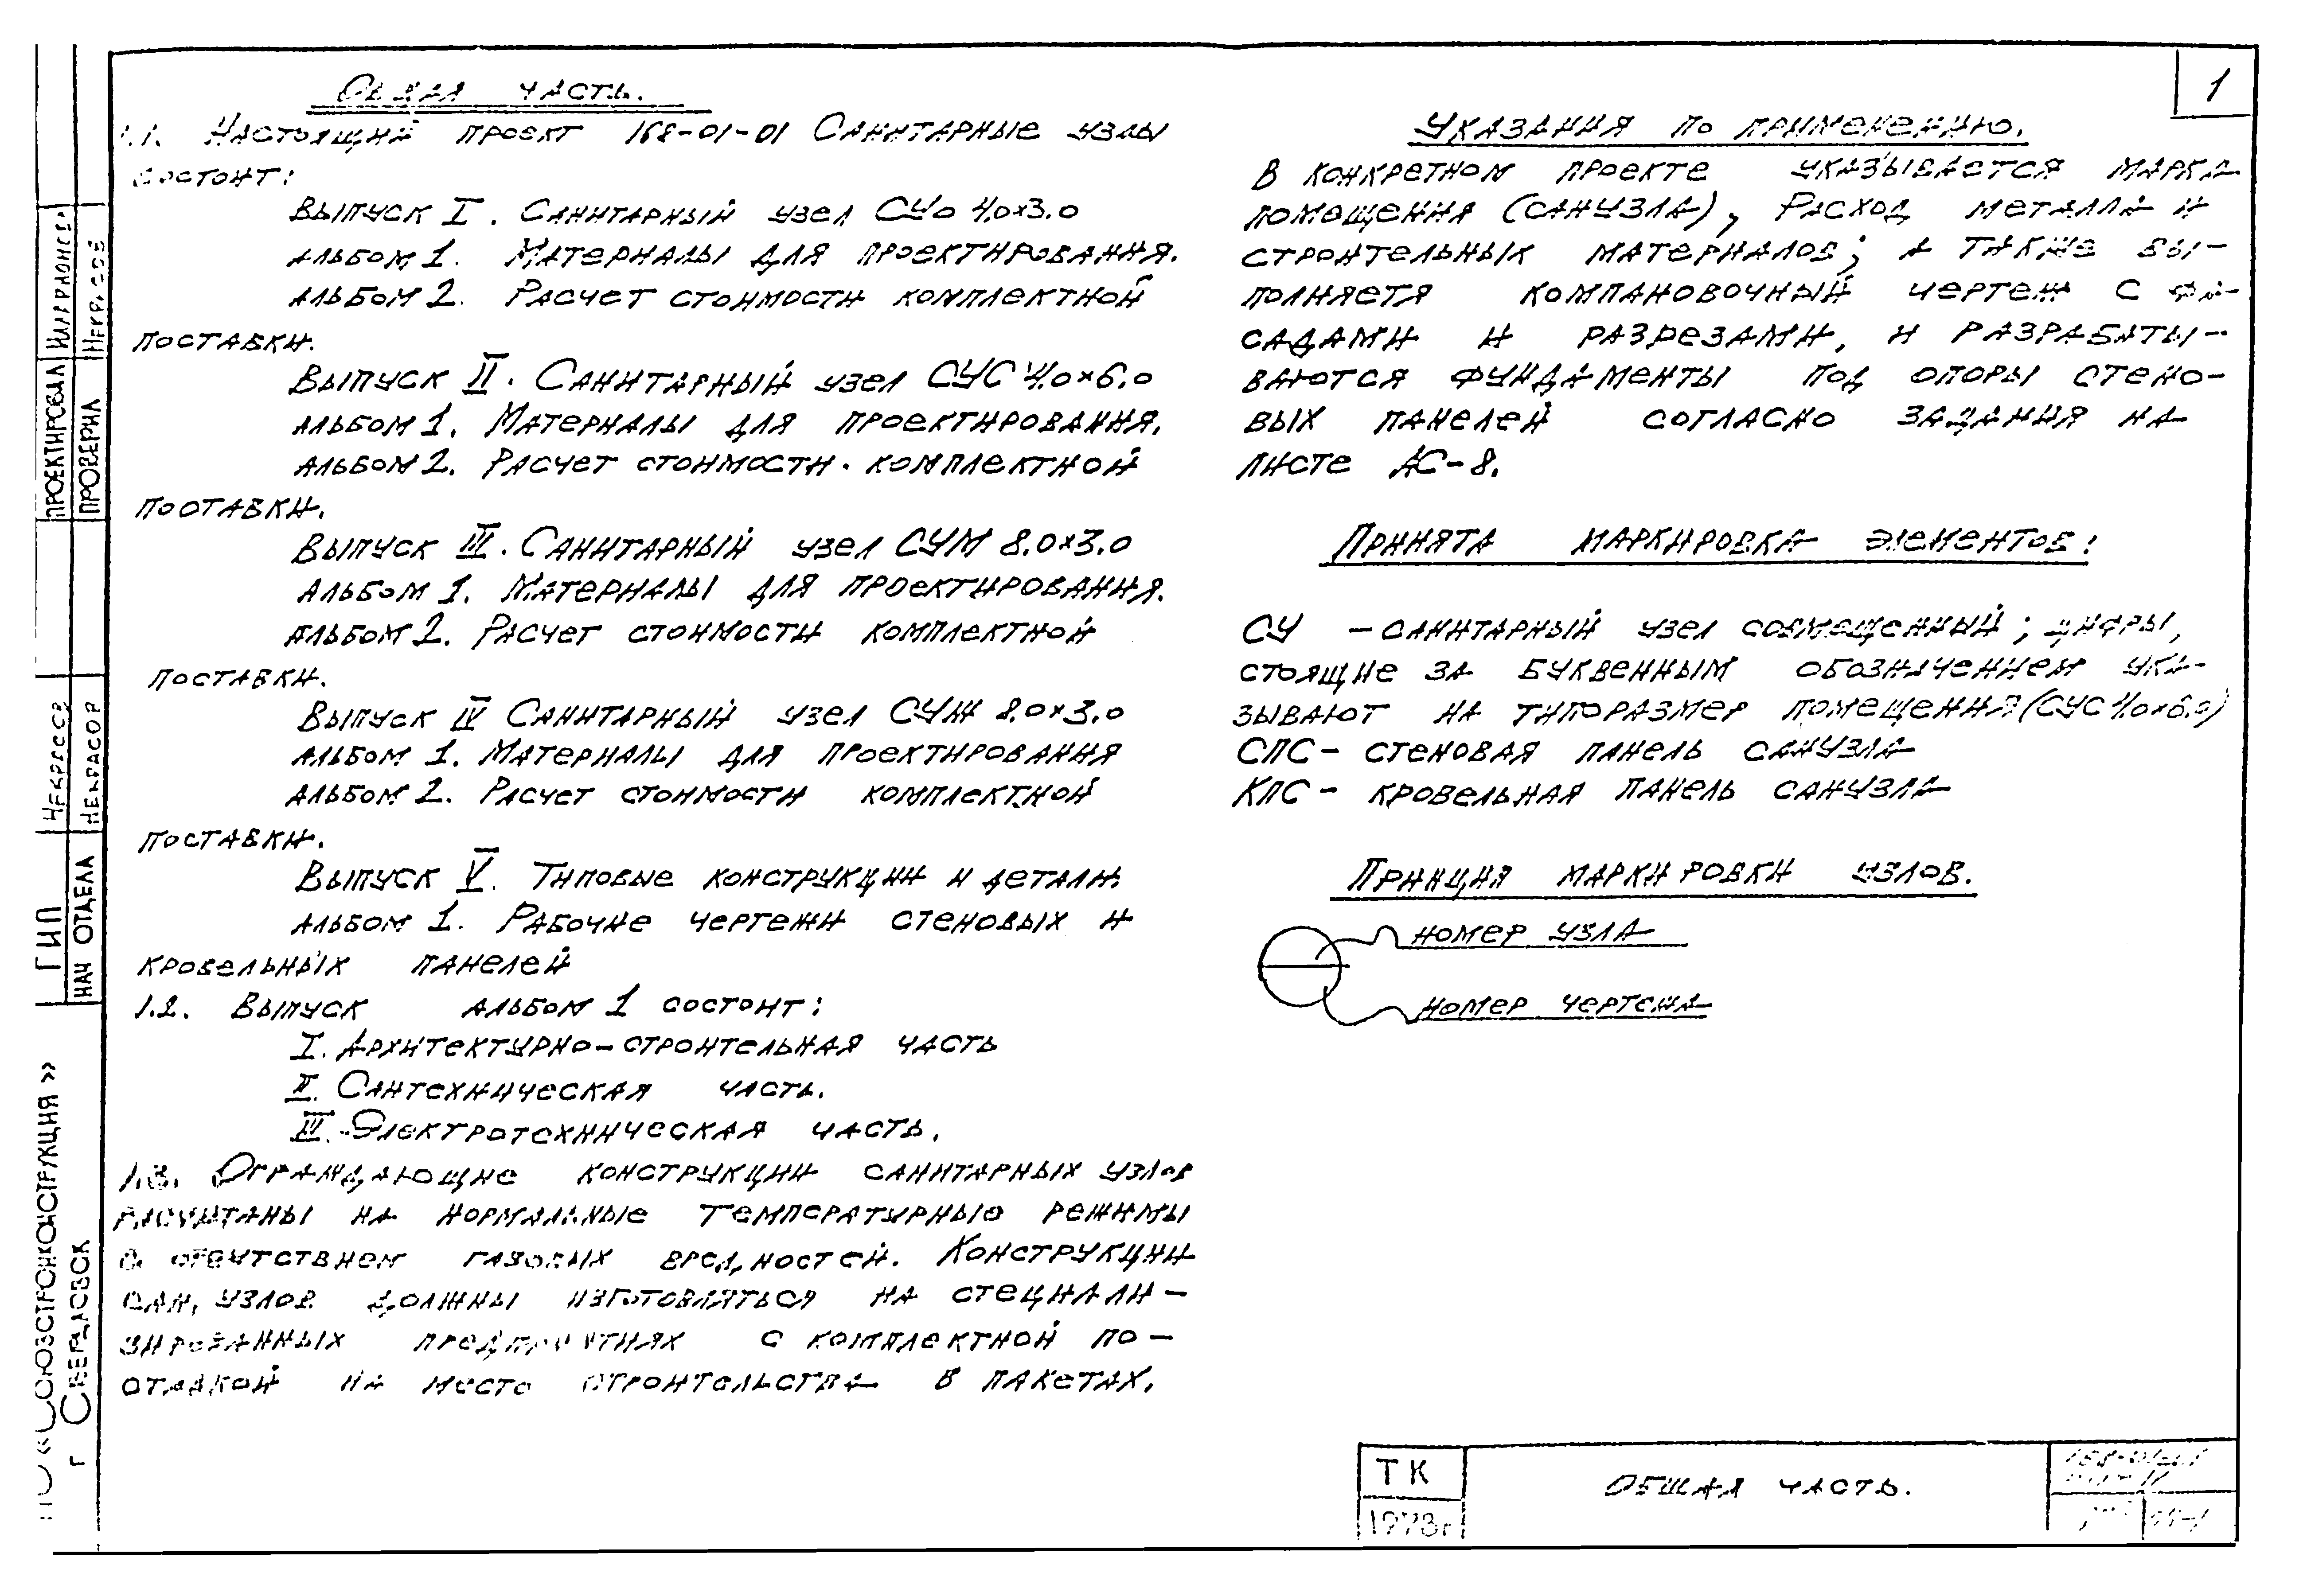 Общая часть.
1.1. Настоящий проект 168-01-01 Санитарные узлы
состоит:
Выпуск I. Санитарный узел СУ0 4.0×3.0
альбом 1. Материалы для проектирования.
альбом 2. Расчет стоимости комплектной
поставки.
Выпуск II. Санитарный узел СУС 4.0×6.0
альбом 1. Материалы для проектирования.
альбом 2. Расчет стоимости комплектной
поставки.
Выпуск III. Санитарный узел СУМ 8.0×3.0
Альбом 1. Материалы для проектирования.
альбом 2. Расчет стоимости комплектной
поставки.
Выпуск IV Санитарный узел СУЖ 8.0×3.0
альбом 1. Материалы для проектирования
альбом 2. Расчет стоимости комплектной
поставки.
Выпуск V. Типовые конструкции и детали.
альбом 1. Рабочие чертежи стеновых и
кровельных панелей
1.2. Выпуск альбом 1 состоит:
I. Архитектурно-строительная часть
II. Сантехническая часть.
III. Электротехническая часть.
1.3. Ограждающие конструкции санитарных узлов
расчитаны на нормальные температурные режимы
с отсутствием газовых вредностей. Конструкции
сан. узлов должны изготовляться на специали-
зированных предприятиях с комплектной по-
ставкой на место строительства в пакетах.
1
Указания по применению.
В конкретном проекте указывается марка
помещения (санузла), Расход металла и
строительных материалов; а также вы-
полняетя компановочный чертеж с фа-
садами и разрезами, и разрабаты-
ваются фундаменты под опоры стено-
вых панелей согласно задания на
листе АС-8.
Принята маркировка элементов:
СУ - санитарный узел совмещенный; цифры,
стоящие за буквенным обозначением ука-
зывают на типоразмер помещения (СУС 4.0×6.0)
СПС - стеновая панель санузла
КПС - кровельная панель санузла
Принция маркировки узлов.
номер узла
номер чертежа
ТК
1978г
Общая часть.
Проектировал
Проверил
ГИП Некрасов
Нач отдела Некрасов
«Союзстройконструкция»
г Свердловск